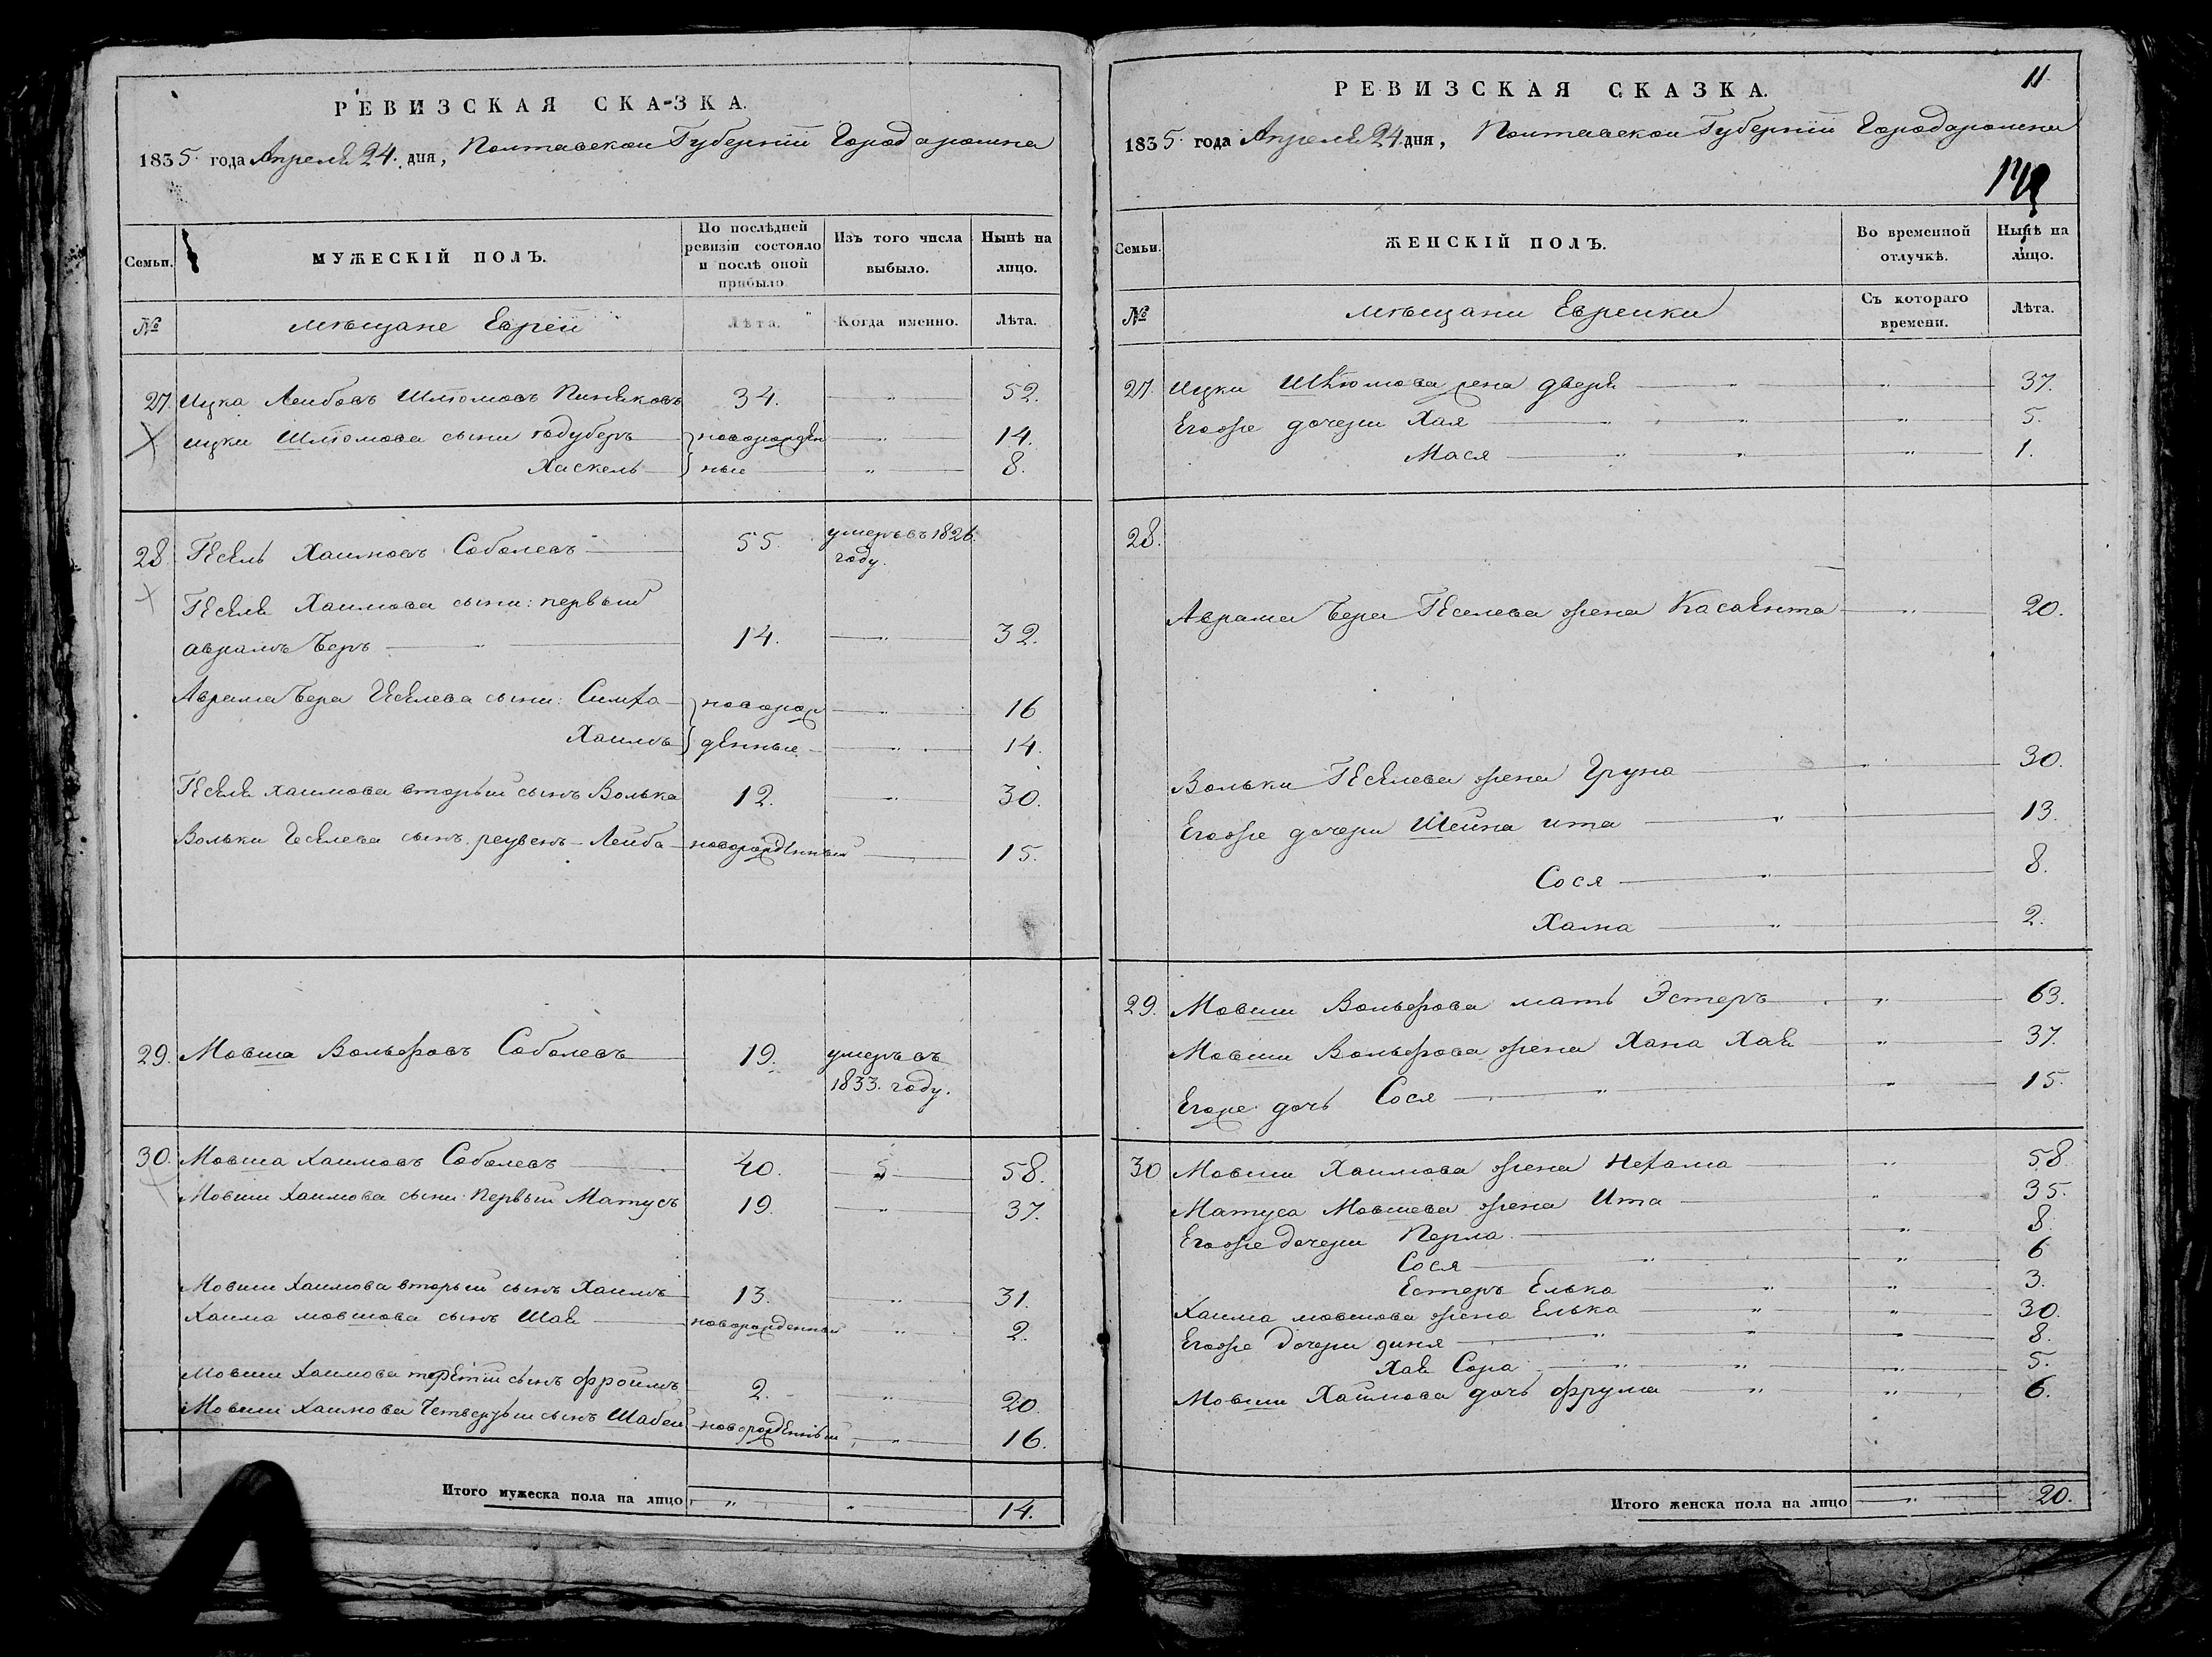 РЕВИЗСКАЯ СКА-ЗКА.
1835. года Апреля 24. дня, Полтавской Губернiи Город
МУЖЕСКІЙ ПОЛЪ.
Семьи.
По послѣдней ревизіи состояло и послѣ оной прибыло.
Изъ того числа выбыло.
Нынѣ на лицо.
№
мѣщане Евреи
Лѣта.
Когда именно.
Лѣта.
27. Ицка Леибовъ Шлiомовъ 34. — " — 52.
ицки Шлiомова сыни новорожден — " — 14.
Хаскель — ные — " — 8.
28. Гесель Хаимовъ Соболевъ — 55. умеръ въ 1826. году.
Геселя Хаимова сыни: первый
аврамъ Беръ — " — 14. — " — 32.
Аврама Бера Геселева сыни: Симха — новорож — " — 16
Хаимъ денные — " — 14.
Геселя хаимова вторый сынъ Волька 12. — " — 30.
Вольки Геселева сынъ реувенъ-Леиба — новорожденный — " — 15.
29. Мовша Вольфовъ Соболевъ — 19. умеръ въ 1833. году.
30. Мовша Хаимовъ Соболевъ — 40. — " — 58.
Мовши Хаимова сыни: Первый Матусъ 19. — " — 37.
Мовши Хаимова вторый сынъ Хаимъ 13. — " — 31.
Хаима мовшова сынъ Шая — новорожденный " — 2.
Мовши Хаимова третiй сынъ фроимъ 2. — " — 20.
Мовши Хаимова Четвертый сынъ Шабси новорожденный — " — 16.
Итого мужеска пола на лицо — " — " — 14.
РЕВИЗСКАЯ СКАЗКА.
11
1835. года Апреля 24. дня, Полтавской Губернiи Город
Семьи.
ЖЕНСКІЙ ПОЛЪ.
Во временной отлучкѣ.
Нынѣ на лицо.
№
мѣщани Евреики
Съ котораго времени.
Лѣта.
27. Ицки Шлiомова жена дверя — " — " — 37.
Егоже дочери Хая — " — " — 5.
Мася — " — " — " — 1.
28.
Аврама Бера Геселева жена — " — 20.
Вольки Геселева жена Груна — " — 30.
Егоже дочери Шеина ита — " — 13.
Сося — " — 8.
Хана — " — 2.
29. Мовши Вольфова мать Эстеръ — " — 63.
Мовши Вольфова жена Хана Хая — " — 37.
Егоже дочь Сося — " — " — 15.
30 Мовши Хаимова жена Нехама — " — 58.
Матуса Мовшева жена Ита — " — 35.
Егоже дочери Перла — " — 8.
Сося — " — " — 6
Естеръ Елька — " — " — 3.
Хаима мовшова жена Елька — " — " — 30.
Егоже дочери диня — " — " — " — 8.
Хая Сора — " — " — " — 5.
Мовши Хаимова дочь фрума — " — " — 6.
Итого женска пола на лицо — " — 20.